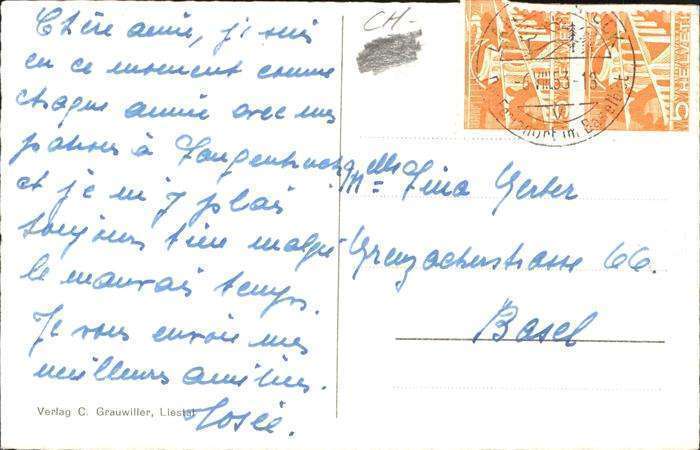 Chère amie, je suis
en ce moment comme
chaque année avec mes
patrons à Langenbruck
et je m'y plais
toujours bien malgré
le mauvais temps.
Je vous envoie mes
meilleurs amitiés.
Josée.
Verlag C. Grauwiller, Liestal
CH-
HELVETIA 5
53-18
Mlle
Tina Gerber
Grenzacherstrasse 66.
Basel